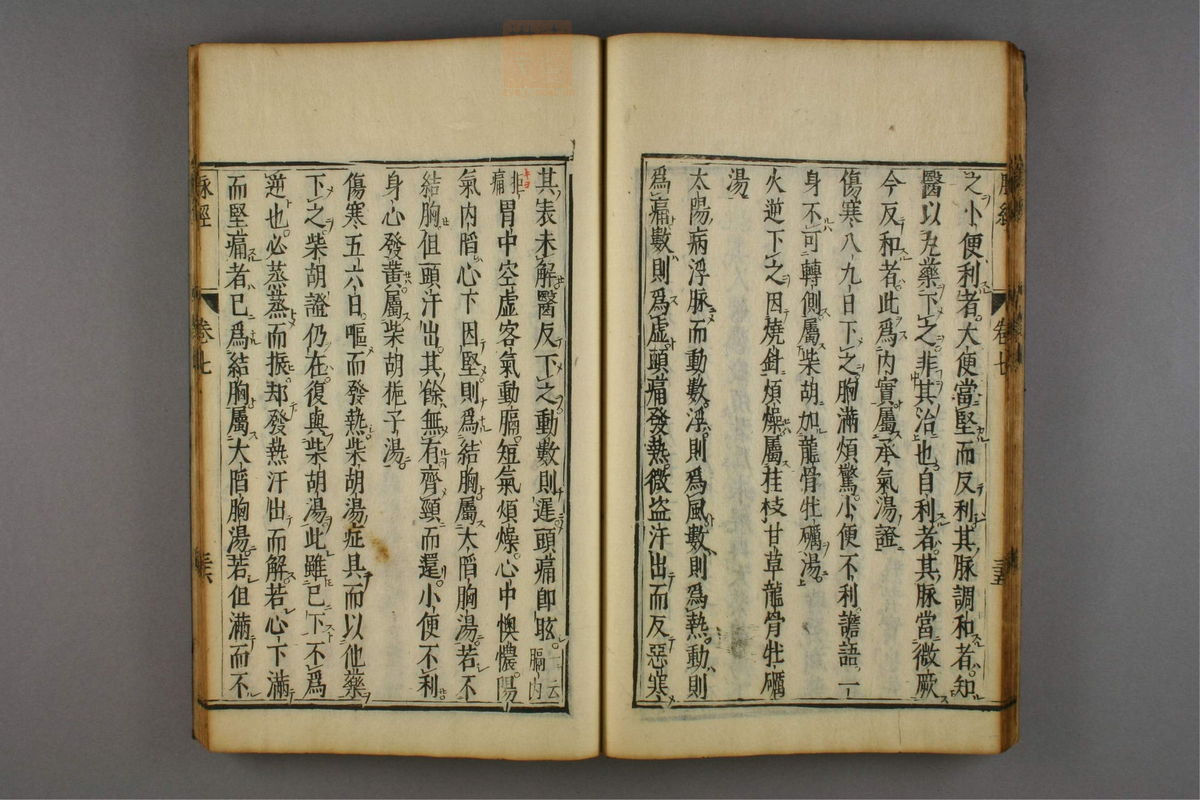 之小便利者大便當堅而反利其脉調和者知
醫以丸藥下之非其治也自利者其脉當微厥
今反和者此為內實屬承氣湯證
傷寒八九日下之胸滿煩驚小便不利譫語一
身不可轉側屬柴胡加龍骨牡礪湯
火逆下之因燒針煩燥屬桂枝甘草龍骨牡礪
湯
太陽病浮脉而動數浮則為風數則為熱動則
為痛數則為虛頭痛發熱微盜汗出而反惡寒
其表未解醫反下之動數則遲頭痛即眩一云膈內
拒痛胃中空虛客氣動膈短氣煩燥心中懊憹陽
氣內陷心下因堅則為結胸屬大陷胸湯若不
結胸但頭汗出其餘無有齊頸而還小便不利
身心發黃屬柴胡梔子湯
傷寒五六日嘔而發熱柴胡湯症具而以他藥
下之柴胡證仍在復與柴胡湯此雖已下不為
逆也必蒸蒸而振却發熱汗出而解若心下滿
而堅痛者已為結胸屬大陷胸湯若但滿而不
脉經 卷七